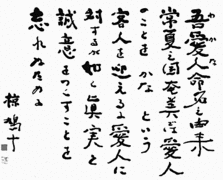 吾愛人命名之由来
常夏之国奄美では愛人
ことを かな という
客人を迎えるに愛人に
対するが如く真実と
誠意をつくすことを
忘れぬための
椋鳩十